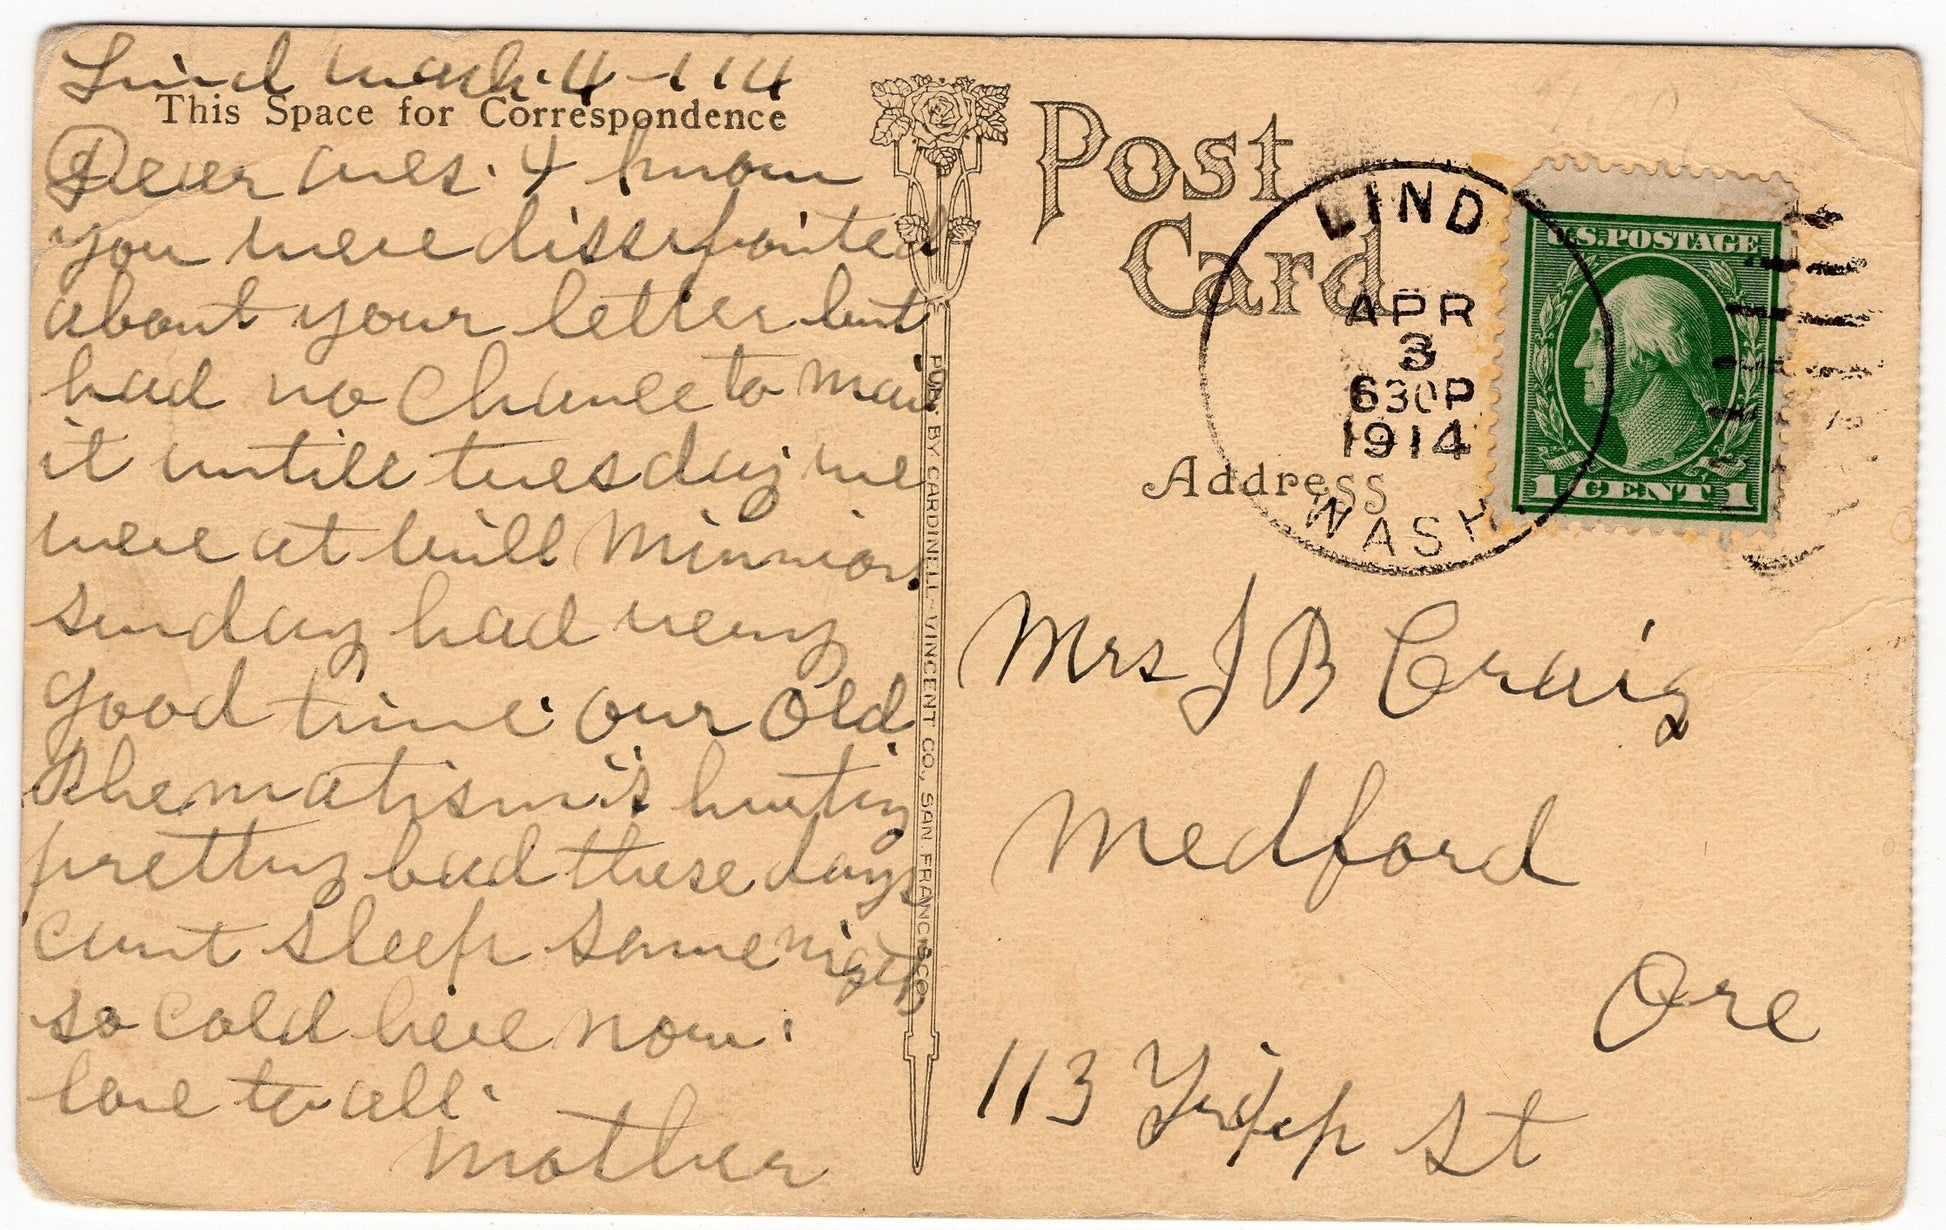 Lind Wash. 4-1 14
This Space for Correspondence
Dear ones. I know
you were dissapointed
about your letter but
had no Chance to mail
it untill tuesday we
were at will Minnion
sunday had very
good time. our old
Rhematism is hurting
pretty bad these days
cant sleep some nights
so cold here now.
love to all.
Mother
PUB. BY CARDINELL-VINCENT CO., SAN FRANCISCO
Post
Card
LIND
APR
3
630P
1914
WASH.
U.S. POSTAGE
1 CENT 1
Address
Mrs J B Craig
Medford
Ore
113 Tripp St